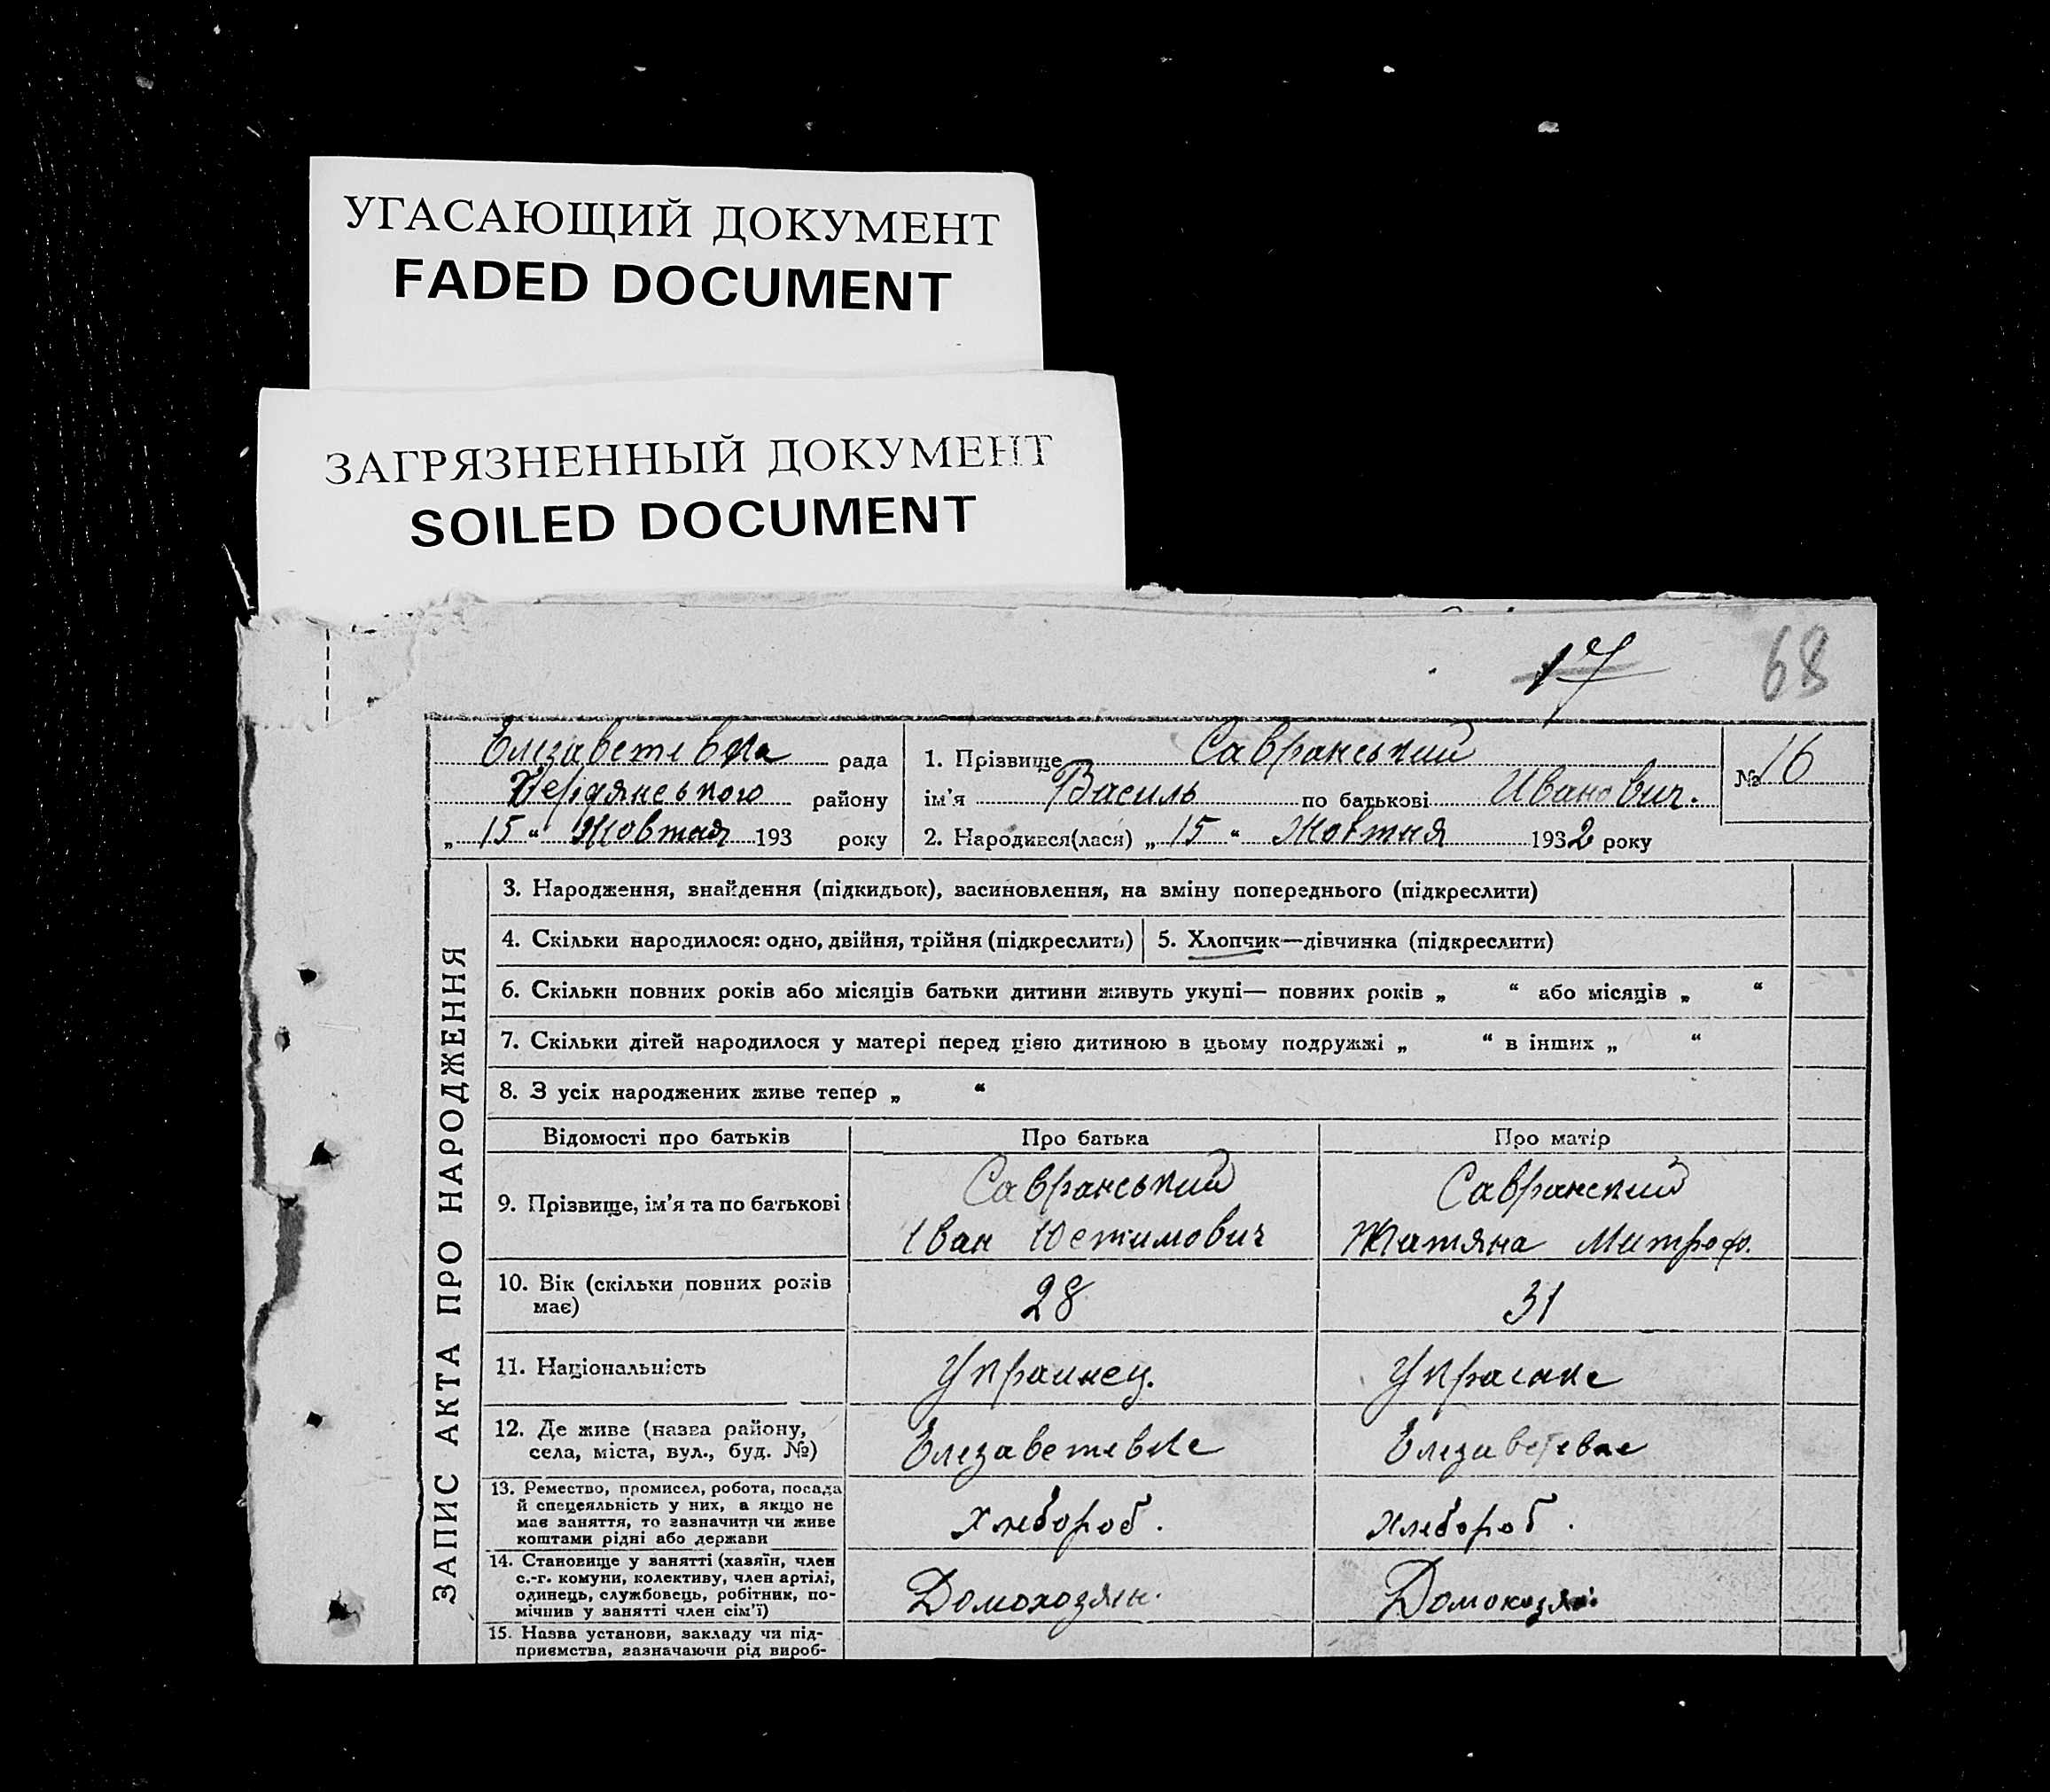 УГАСАЮЩИЙ ДОКУМЕНТ
FADED DOCUMENT
ЗАГРЯЗНЕННЫЙ ДОКУМЕНТ
SOILED DOCUMENT
17 68
Елезаветевка рада
Бердянського району
„ 15 “ Жовтня 193 року
1. Прізвище Савранський
ім'я Василь по батькові Иванович.
2. Народився(лася) „ 15 “ Жовтня 1932 року
№ 16
ЗАПИС АКТА ПРО НАРОДЖЕННЯ
3. Народження, знайдення (підкидьок), засиновлення, на зміну попереднього (підкреслити)
4. Скільки народилося: одно, двійня, трійня (підкреслить) 5. Хлопчик—дівчинка (підкреслити)
6. Скільки повних років або місяців батьки дитини живуть укупі— повних років „ “ або місяців „ “
7. Скільки дітей народилося у матері перед цією дитиною в цьому подружжі „ “ в інших „ “
8. З усіх народжених живе тепер „ “
Відомості про батьків Про батька Про матір
9. Прізвище, ім'я та по батькові
Савранський
Іван Юстимович
Савранский
Татяна Митроф.
10. Вік (скільки повних років
має)
28 31
11. Національність Украинец. Украіанке
12. Де живе (назва району,
села, міста, вул., буд. №)
Елезаветевке Елезаветевке
13. Ремество, промисел, робота, посада
й спецеяльність у них, а якщо не
має заняття, то зазначити чи живе
коштами рідні або держави
Хлебороб. Хлебороб.
14. Становище у занятті (хазяїн, член
с.-г. комуни, колективу, член артілі,
одинець, службовець, робітник, по-
мічнив у занятті член сім'ї)
Домохозяин. Домохозяи
15. Назва установи, закладу чи під-
приємства, зазначаючи рід вироб-